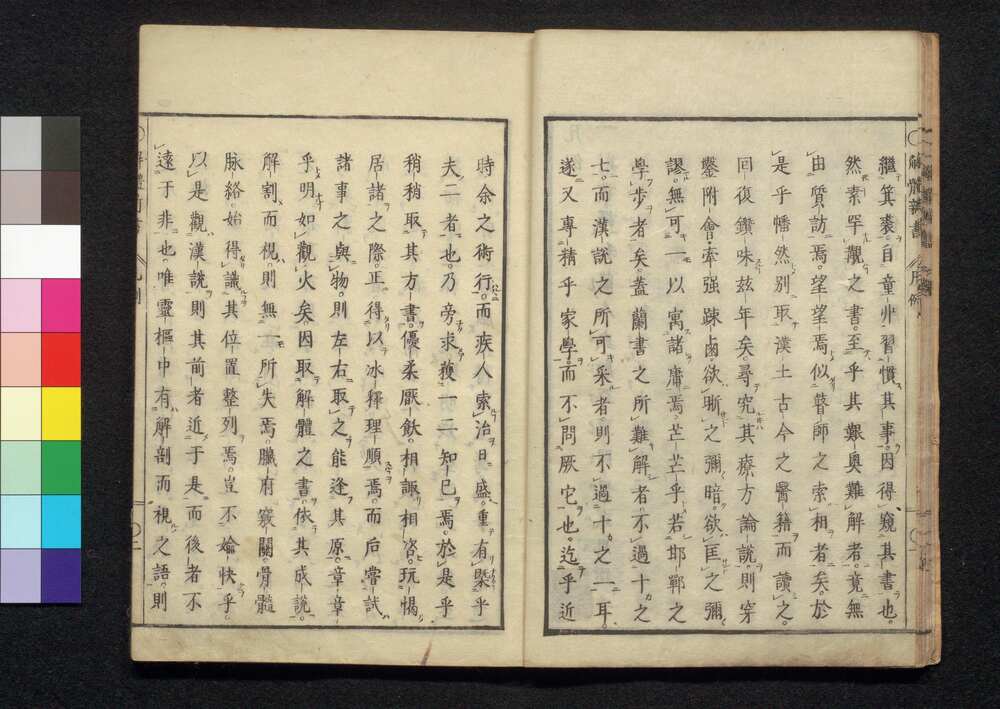 解體新書
繼箕裘自童丱習慣其事因得窺其書也
然素罕覯之書至乎其艱奧難解者竟無
由質訪焉望望焉似瞽師之索相者矣於
是乎幡然別取漢土古今之醫籍而讀之
回復鑽味玆年矣尋究其療方論說則穿
鑿附會牽强踈鹵欲晣之彌暗欲匡之彌
謬無可一以寓諸庸焉芒芒乎若邯鄲之
學步者矣蓋蘭書之所難解者不過十之
七而漢說之所可采者則不過十之一耳
遂又專精乎家學而不問厥它也迄乎近
時余之術行而疾人索治日盛重有槩乎
夫二者也乃旁求獲一二知已焉於是乎
稍稍取其方書優柔厭飫相諏相咨玩愒
居諸之際正得以冰釋理順焉而后嘗試
諸事之與物則左右取之能逢其原章章
乎明如觀火矣因取解體之書依其成說
解割而視則無一所失焉臟府竅關骨髓
脉絡始得識其位置整列焉豈不媮快乎
以是觀漢說則其前者近于是而後者不
遠于非也唯靈樞中有解剖而視之語則